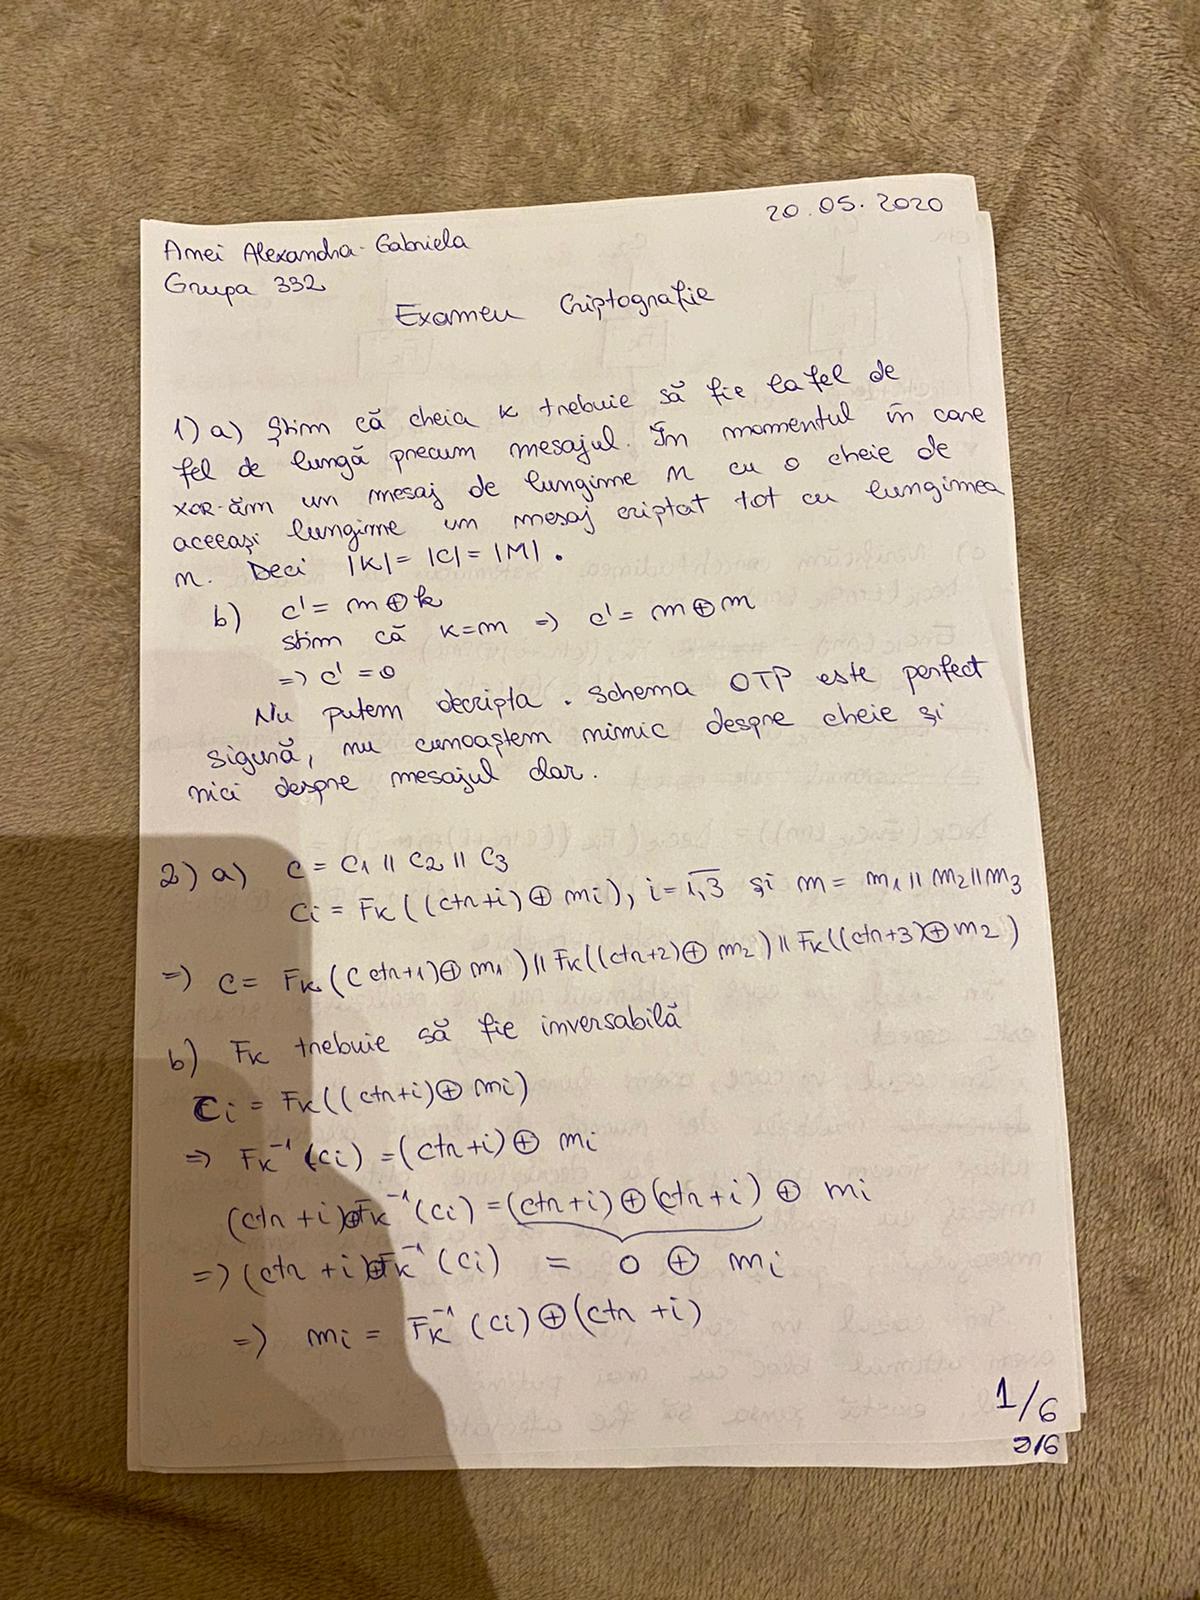 20.05.2020
Anei Alexandra-Gabriela
Grupa 332
Examen Criptografie
1) a) Știm că cheia k trebuie să fie la fel de
fel de lungă precum mesajul. În momentul în care
xor-ăm un mesaj de lungime n cu o cheie de
aceeași lungime un mesaj criptat tot cu lungimea
n. Deci |K| = |C| = |M|.
b) c' = m ⊕ k
stim că k=m => c' = m ⊕ m
=> c' = 0
Nu putem decripta. Schema OTP este perfect
sigură, nu cunoaștem nimic despre cheie și
nici despre mesajul dar.
2) a) C = C1 || C2 || C3
Ci = FK((ctr+i) ⊕ mi), i = 1,3 și m = m1 || m2 || m3
=> C = FK(Cctr+1) ⊕ m1) || FK((ctr+2) ⊕ m2) || FK((ctr+3) ⊕ m2)
b) FK trebuie să fie inversabilă
Ci = FK((ctr+i) ⊕ mi)
=> FK⁻¹(ci) = (ctr+i) ⊕ mi
(ctr+i)⊕FK⁻¹(ci) = (ctr+i) ⊕ (ctr+i) ⊕ mi
=> (ctr+i)⊕FK⁻¹(ci) = 0 ⊕ mi
=> mi = FK⁻¹(ci) ⊕ (ctr+i)
1/6
2/6